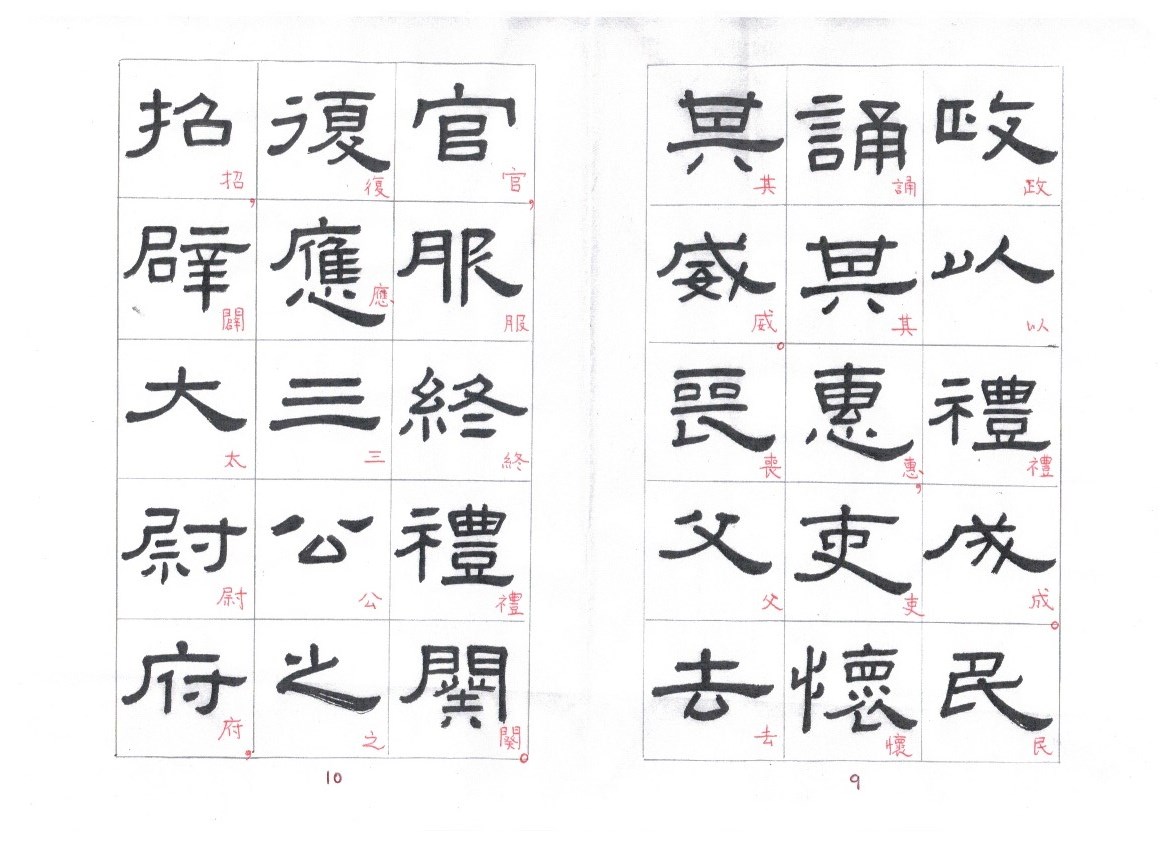 政以禮成民
政以禮成。民
誦其惠吏懷
誦其惠,吏懷
其威喪父去
其威。喪父去
9
官服終禮闋
官,服終禮闋。
復應三公之
復應三公之
招辟大尉府
招,闢太尉府,
10